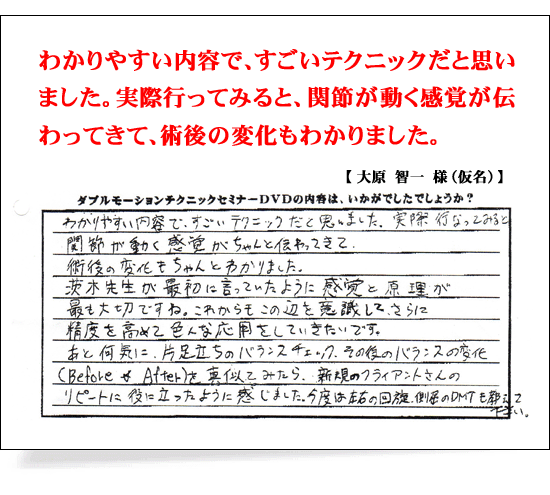 わかりやすい内容で、すごいテクニックだと思い
ました。実際行ってみると、関節が動く感覚が伝
わってきて、術後の変化もわかりました。
【 大原 智一 様（仮名）】
ダブルモーションテクニックセミナーDVDの内容は、いかがでしたでしょうか？
わかりやすい内容で、すごいテクニックだと思いました。実際行なってみると
関節が動く感覚がちゃんと伝わってきて、
術後の変化もちゃんとわかりました。
茨木先生が最初に言っていたように感覚と原理が
最も大切ですね。これからもこの辺を意識して、さらに
精度を高めて色んな応用をしていきたいです。
あと何気に、片足立ちのバランスチェック、その後のバランスの変化
(Before & After)を真似てみたら、新規のクライアントさんの
リピートに役に立ったように感じました。今度は左右の回旋、側屈のDMTも教えて
下さい。